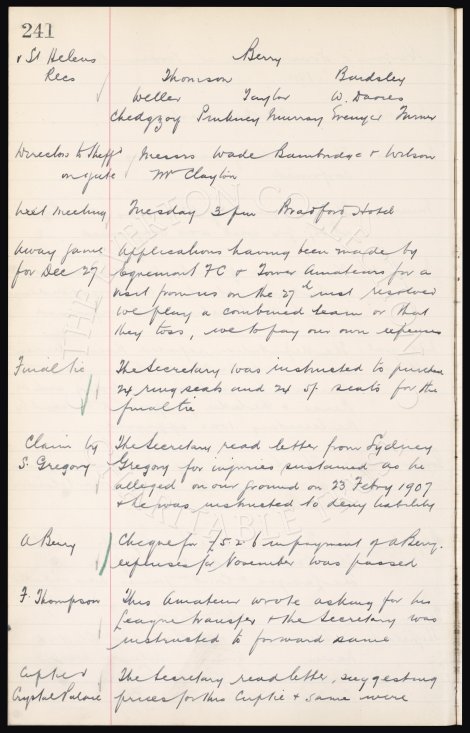 241
v St Helens Berry
Recs Thomson Bardsley
Weller Taylor W. Davies
Chedgzoy Pinkney Murray Turner
Directors to Sheffd Messrs Wade Bainbridge & Wilson
on gate Mr Clayton
Next Meeting Tuesday 3 pm Bradford Hotel
Away Game Applications having been made by
for Dec 27 Egremont FC & Tower Amateurs for a
visit from us on the 27th inst resolved
we play a combined team or that
they toss, we to pay our own expenses
Final tie The Secretary was instructed to purchase
24 ring seats and 24 5/- seats for the
final tie
Claim by The Secretary read letter from Sydney
S. Gregory Gregory for injuries sustained as he
alleged on our ground on 23 Febry 1907
& he was instructed to deny liability
A Berry Cheque for £5.2.6 in payment of A Berry.
expenses for November was passed
F. Thompson This Amateur wrote asking for his
League transfer & the Secretary was
instructed to forward same
Cuptie v The Secretary read letter, suggesting
Crystal Palace prices for this Cuptie & same were
THE EVERTON COLLECTION
CHARITABLE TRUST